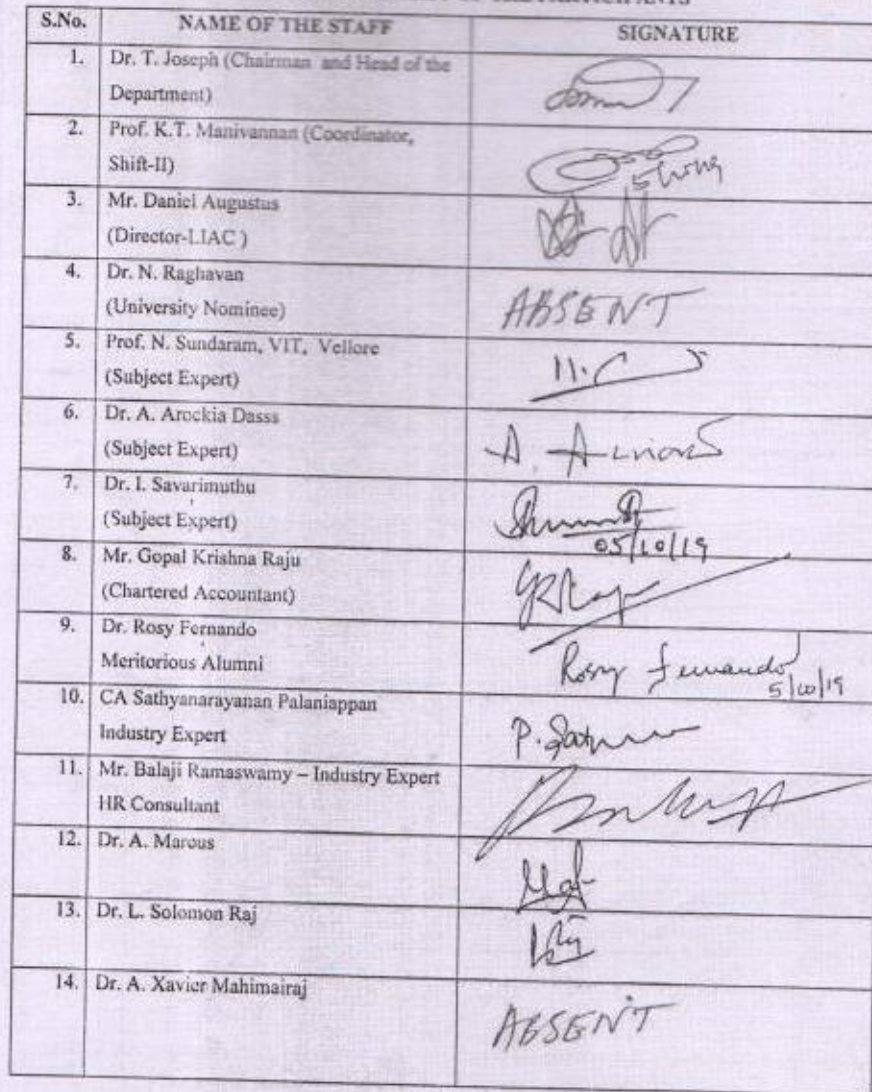 PARTICIPANTS
S.No. NAME OF THE STAFF SIGNATURE
1. Dr. T. Joseph (Chairman and Head of the
Department)
2. Prof. K.T. Manivannan (Coordinator,
Shift-II)
3. Mr. Daniel Augustus
(Director-LIAC )
4. Dr. N. Raghavan
(University Nominee) ABSENT
5. Prof. N. Sundaram, VIT, Vellore
(Subject Expert)
6. Dr. A. Arockia Dasss
(Subject Expert)
7. Dr. I. Savarimuthu
(Subject Expert)
05/10/19
8. Mr. Gopal Krishna Raju
(Chartered Accountant)
9. Dr. Rosy Fernando
Meritorious Alumni Rosy Fernando
5/10/19
10. CA Sathyanarayanan Palaniappan
Industry Expert
11. Mr. Balaji Ramaswamy – Industry Expert
HR Consultant
12. Dr. A. Marous
13. Dr. L. Solomon Raj
14. Dr. A. Xavier Mahimairaj
ABSENT